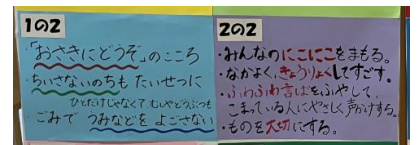 1の2
「おさきにどうぞ」のこころ
ちいさないのちも たいせつに
ひとだけじゃなくて むしやどうぶつも
ごみで うみなどを よごさない
2の2
・みんなのにこにこをまもる。
・なかよく、きょうりょくしてすごす。
・ふわふわ言ばをふやして、
こまっている人にやさしく声かけする。
・ものを大切にする。